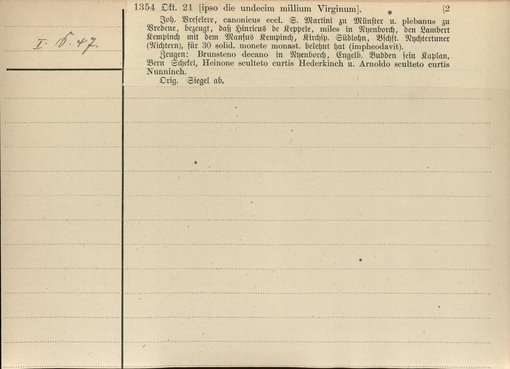 1354 Okt. 21 [ipso die undecim millium Virginum]. [2
Joh. Breselere, canonicus eccl. S. Martini zu Münster u. plebanus zu
Vredene, bezeugt, daß Hinricus de Keppele, miles in Nyenborch, den Lambert
Kempinck mit dem Mansus Kempinck, Kirchsp. Südlohn, Bschft. Nychterncner
(Nichtern), für 30 solid. monete monast. belehnt hat (impheodavit).
Zeugen: Brunsteno decano in Nyenborch, Engelb. Budden sein Kaplan,
Bern Schekel, Heinone sculteto curtis Hederkinch u. Arnoldo sculteto curtis
Nunninch.
Orig. Siegel ab.
I. 47.